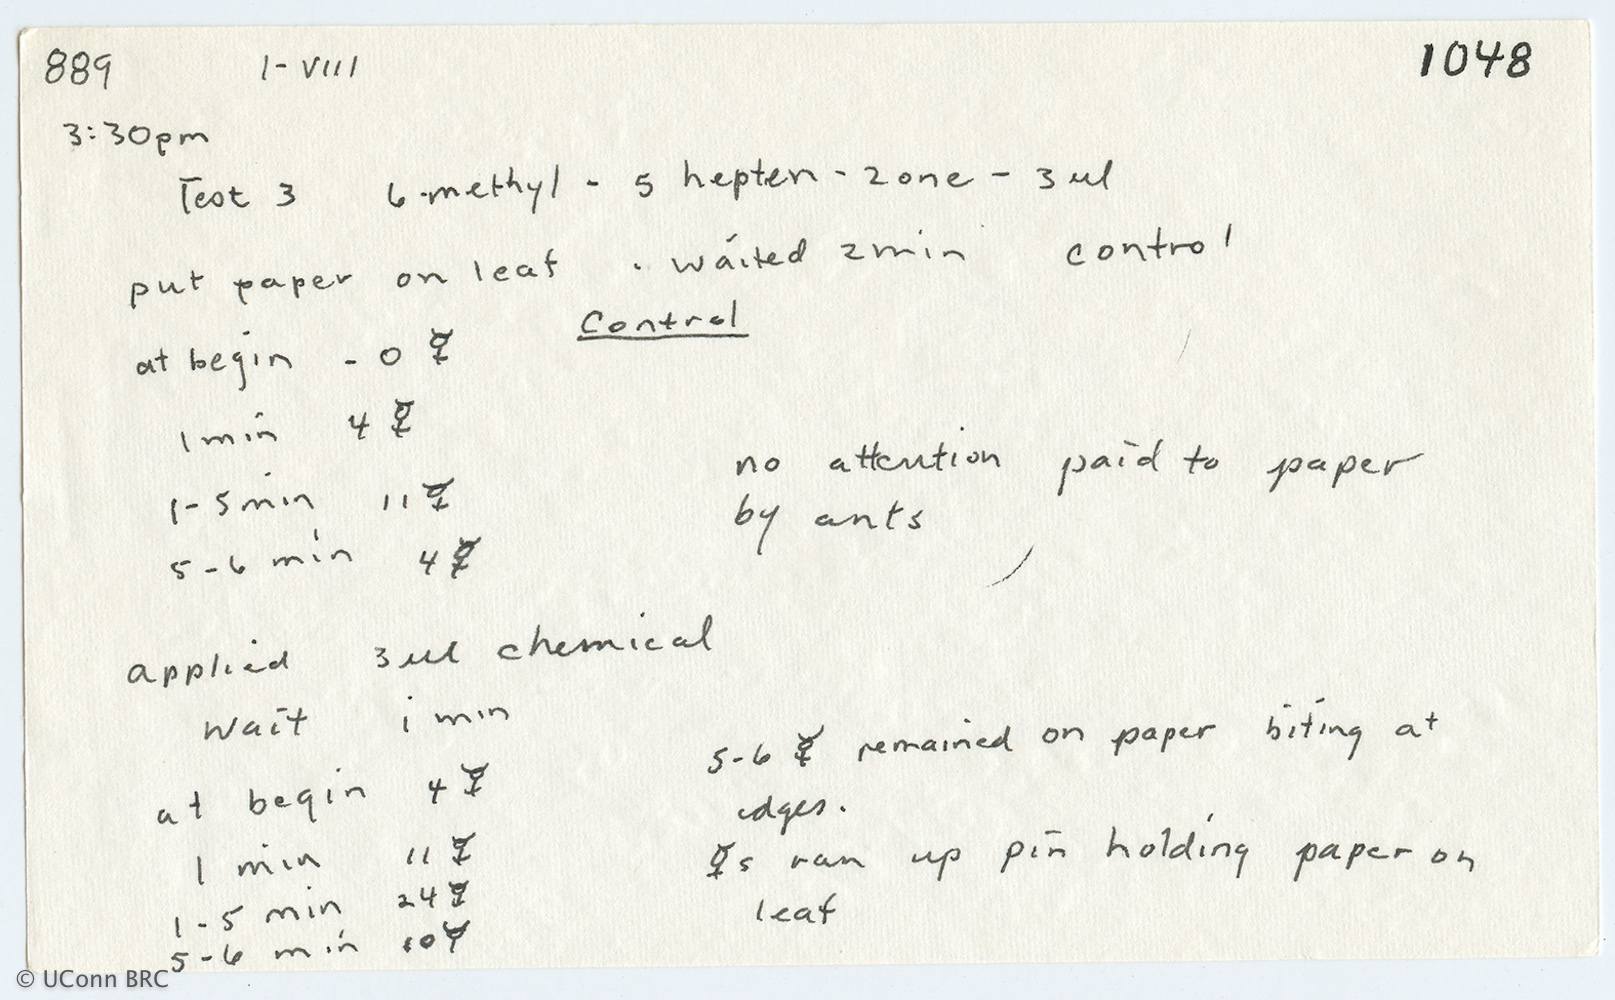 889 1-VIII 1048
3:30pm
Test 3 6-methyl - 5 hepten - 2one - 3ul
put paper on leaf . waited 2min control
Control
at begin - 0 ☿
1min 4 ☿
1-5min 11 ☿
5-6 min 4 ☿
no attention paid to paper
by ants
applied 3ul chemical
wait 1 min
at begin 4 ☿
1 min 11 ☿
1-5 min 24 ☿
5-6 min 10 ☿
5-6 ☿ remained on paper biting at
edges.
☿s ran up pin holding paper on
leaf
© UConn BRC